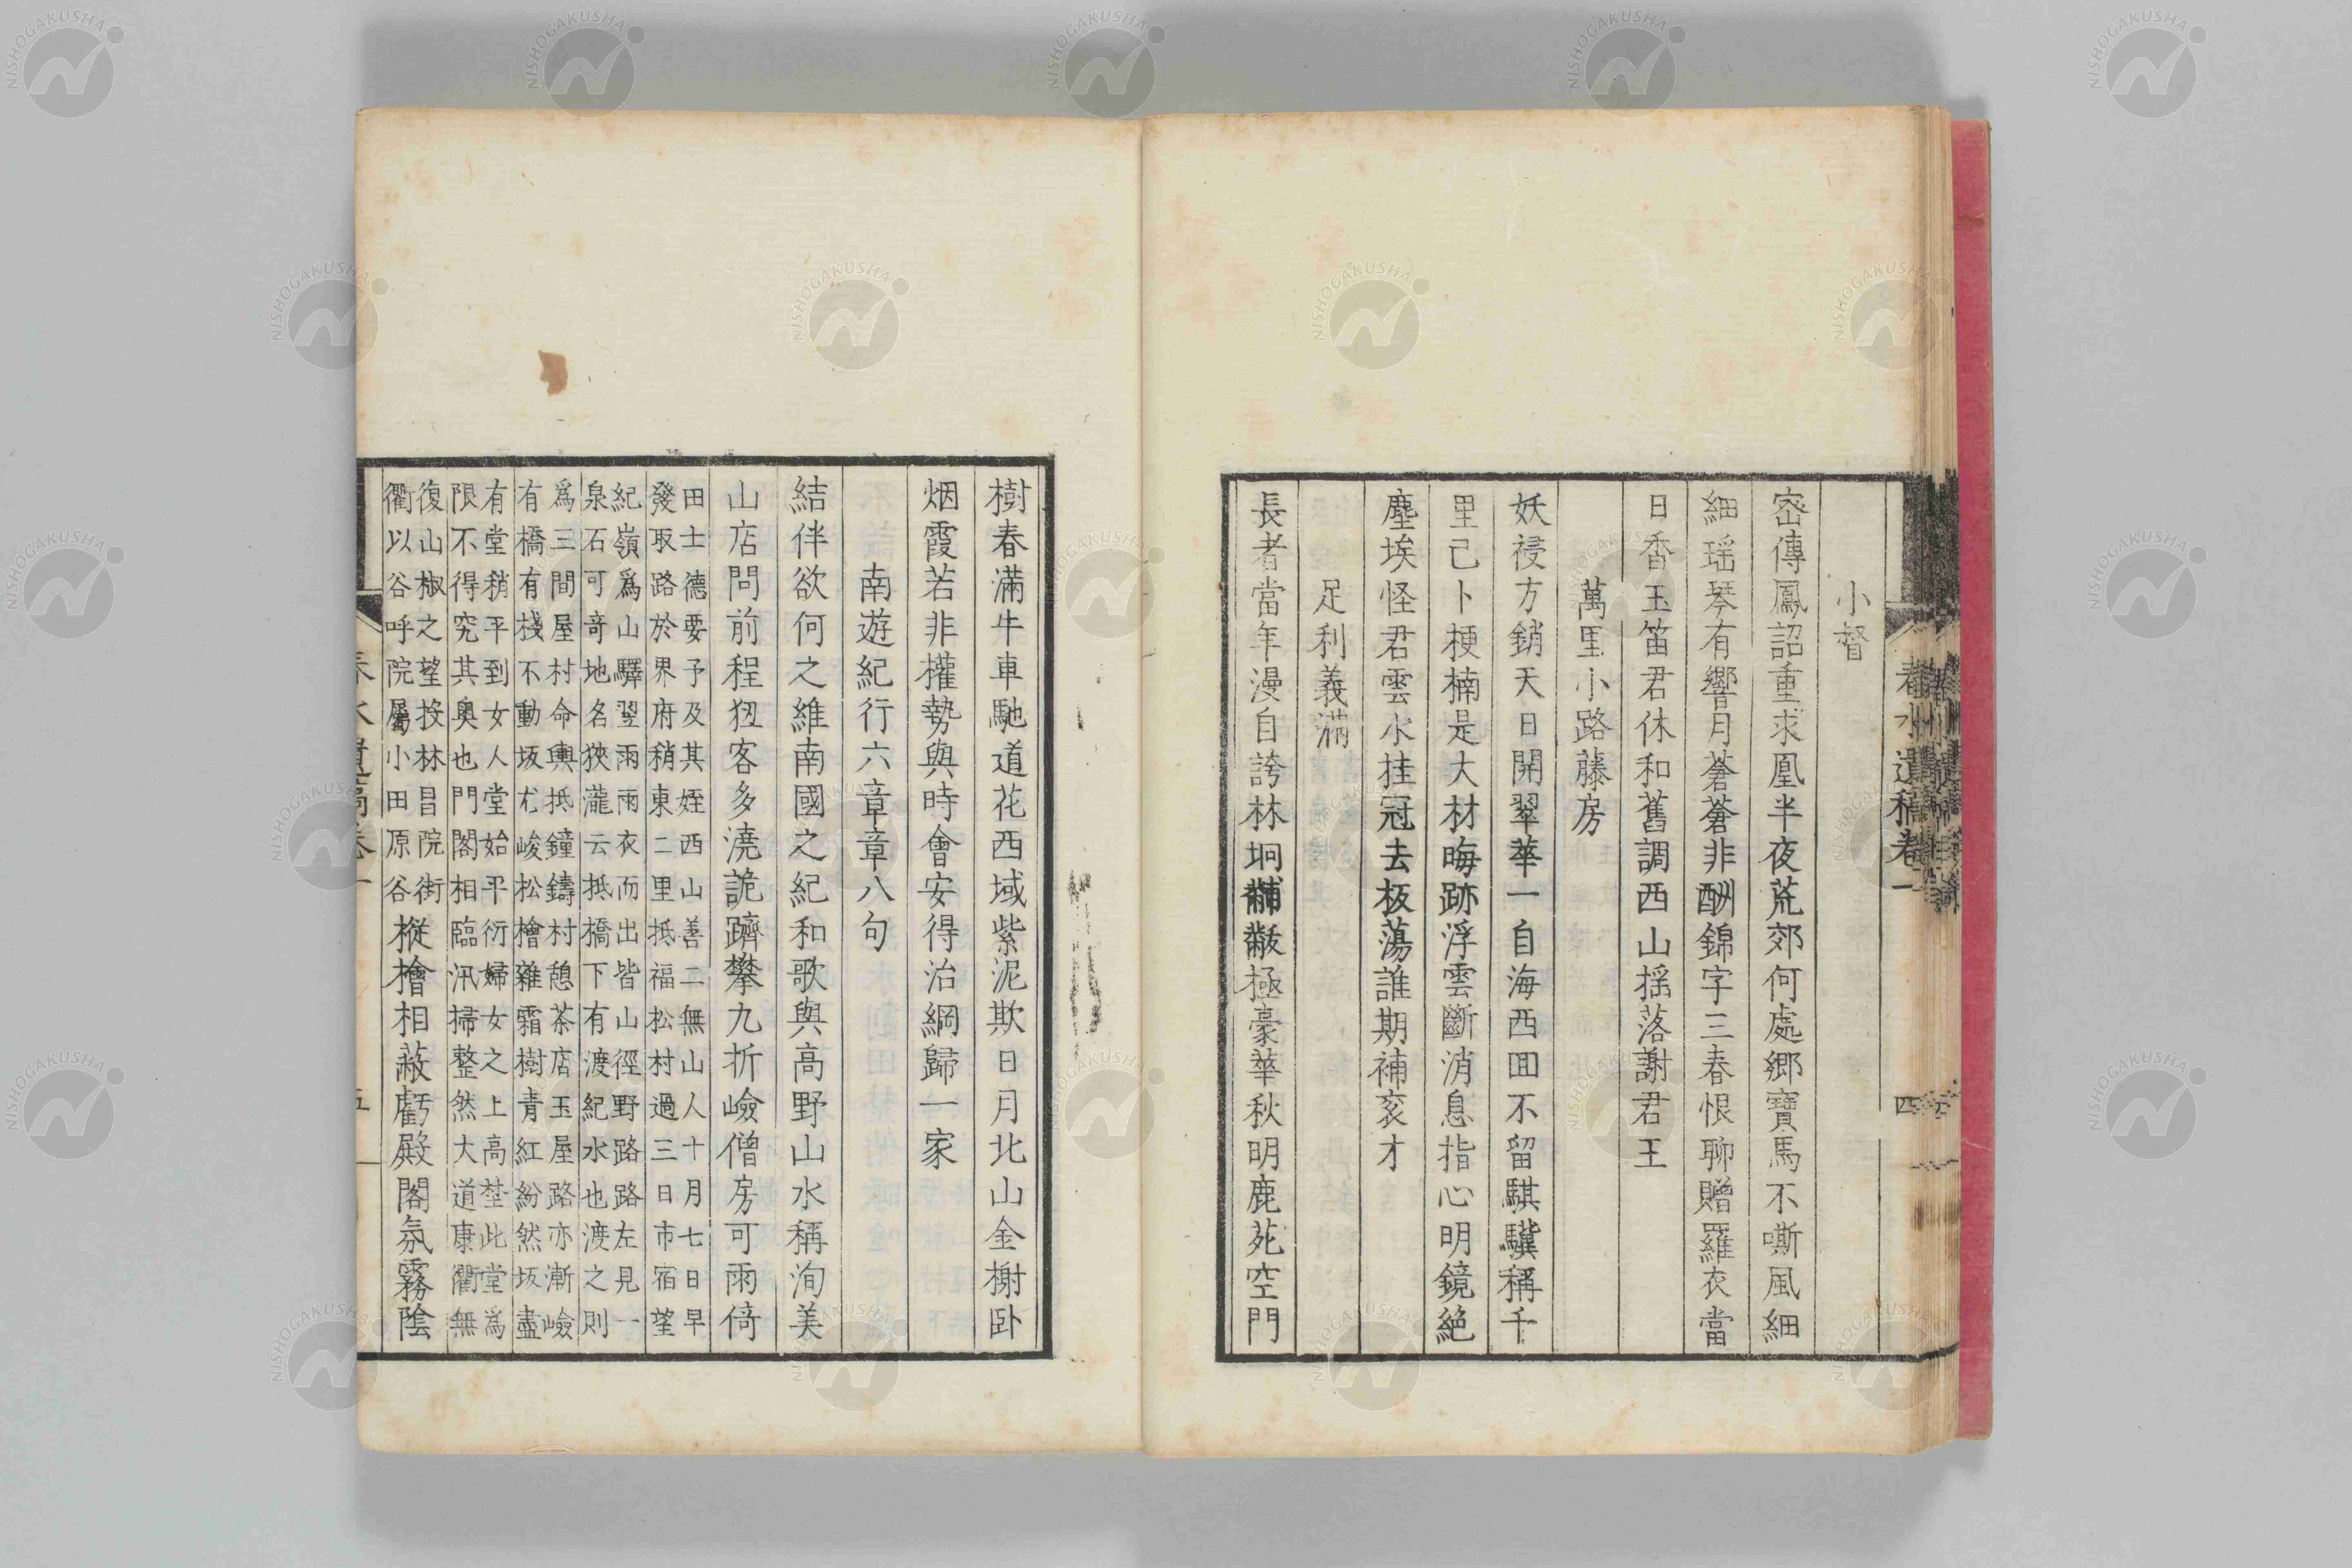 小督
密傳鳳詔重求凰半夜荒郊何處鄉寶馬不嘶風細
細瑶琴有響月蒼蒼非酬錦字三春恨聊贈羅衣當
日香玉笛君休和舊調西山揺落謝君王
萬里小路藤房
妖祲方銷天日開翠華一自海西囬不留騏驥稱千
里己卜梗楠是大材晦跡浮雲斷消息指心明鏡絶
塵埃怪君雲水挂冠去板蕩誰期補衮才
足利義滿
長者當年漫自誇林垌黼黻極豪華秋明鹿苑空門
樹春滿牛車馳道花西域紫泥欺日月北山金榭卧
烟霞若非權勢與時會安得治綱歸一家
南遊紀行六章章八句
結伴欲何之維南國之紀和歌與高野山水稱洵美
山店問前程狃客多澆詭躋攀九折嶮僧房可雨倚
田士德要予及其姪西山善二無山人十月七日早
發取路於界府稍東二里抵福松村過三日市宿望
紀嶺爲山驛翌雨雨衣而出皆山徑野路路左見一
泉石可奇地名狹瀧云抵橋下有渡紀水也渡之則
爲三間屋村命輿抵鐘鑄村憩茶店玉屋路亦漸嶮
有橋有棧不動坂尤峻松檜雜霜樹青紅紛然坂盡
有堂稍平到女人堂始平衍婦女之上高埜此堂爲
限不得究其奥也門閣相臨汛掃整然大道康衢無
復山椒之望投林昌院街
衢以谷呼院屬小田原谷
樅檜相蔽虧殿閣氛霧陰
春水遺稿卷一
四